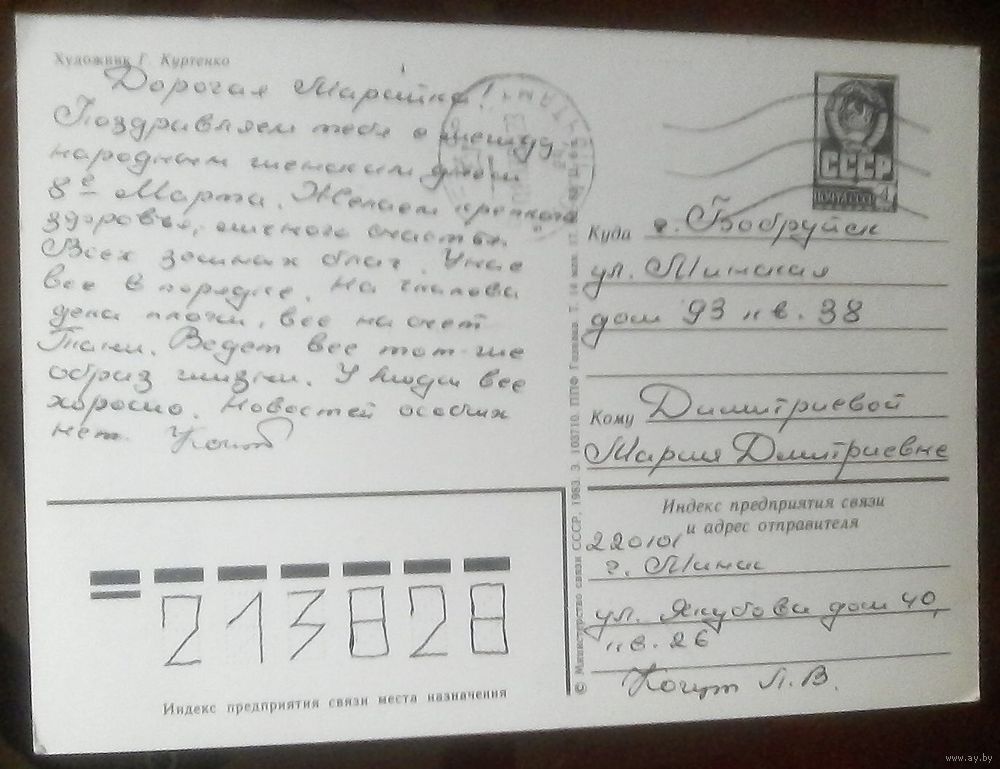 Художник Г. Куртенко
Дорогая Марийка!
Поздравляем тебя с между
народным женским днем
8е Марта. Желаем крепкого
здоровья, личного счастья.
Всех земных благ. У нас
все в порядке. На
дела плохи, все на счет
Тани. Ведет все тот-же
образ жизни. У Люди все
хорошо. Новостей особых
нет. Когут
СССР
ПОЧТА 4
Куда г. Бобруйск
ул. Минская
дом 93 кв. 38
Кому Димитриевой
Марии Дмитриевне
Индекс предприятия связи
и адрес отправителя
220101
г. Минск
ул. Якубова дом 40,
кв. 26
Когут Л. В.
213828
Индекс предприятия связи места назначения
© Министерство связи СССР, 1983. З. 103710. ППФ Гознака.
www.ay.by